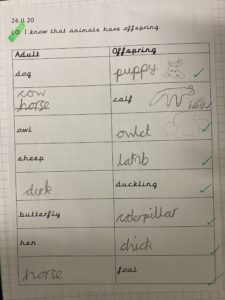 26.11.20
LO: I know that animals have offspring.
Adult Offspring
dog puppy
cow
horse calf
owl owlet
sheep lamb
duck duckling
butterfly caterpillar
hen chick
horse foal